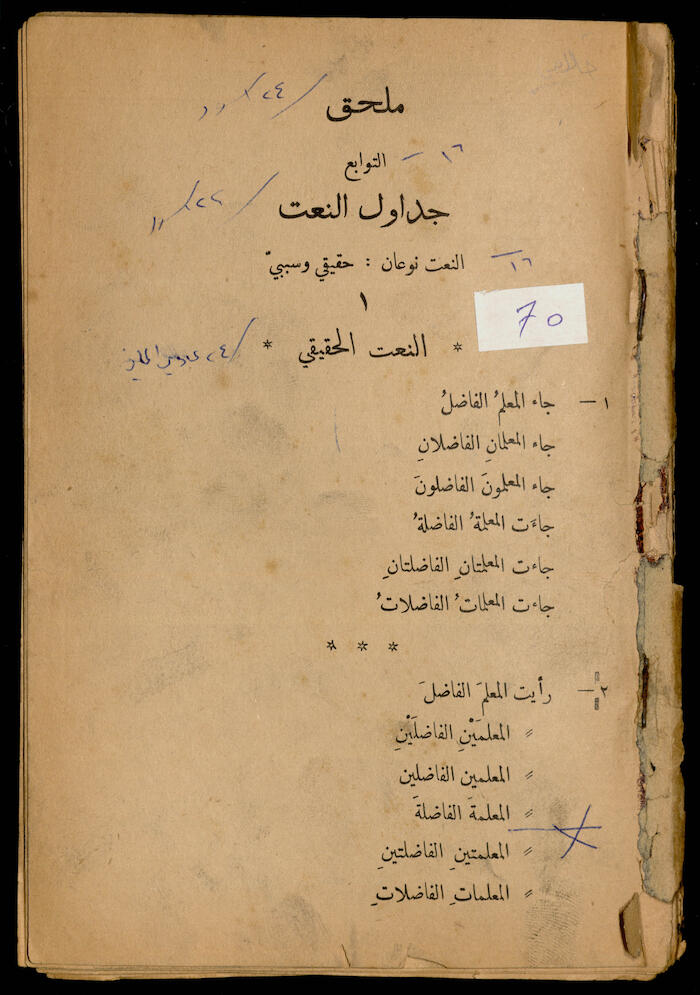 ملحق
التوابع — ١٦
جداول النعت
النعت نوعان : حقيقي وسببيّ — ١٦
١
70
* النعت الحقيقي *
١ — جاء المعلمُ الفاضلُ
جاء المعلمانِ الفاضلانِ
جاء المعلمونَ الفاضلونَ
جاءَت المعلمةُ الفاضلةُ
جاءت المعلمتانِ الفاضلتانِ
جاءت المعلماتُ الفاضلاتُ
* * *
٢ — رأيت المعلمَ الفاضلَ
〃 المعلمَيْنِ الفاضلَيْنِ
〃 المعلمين الفاضلين
〃 المعلمةَ الفاضلةَ
〃 المعلمتينِ الفاضلتينِ
〃 المعلماتِ الفاضلاتِ